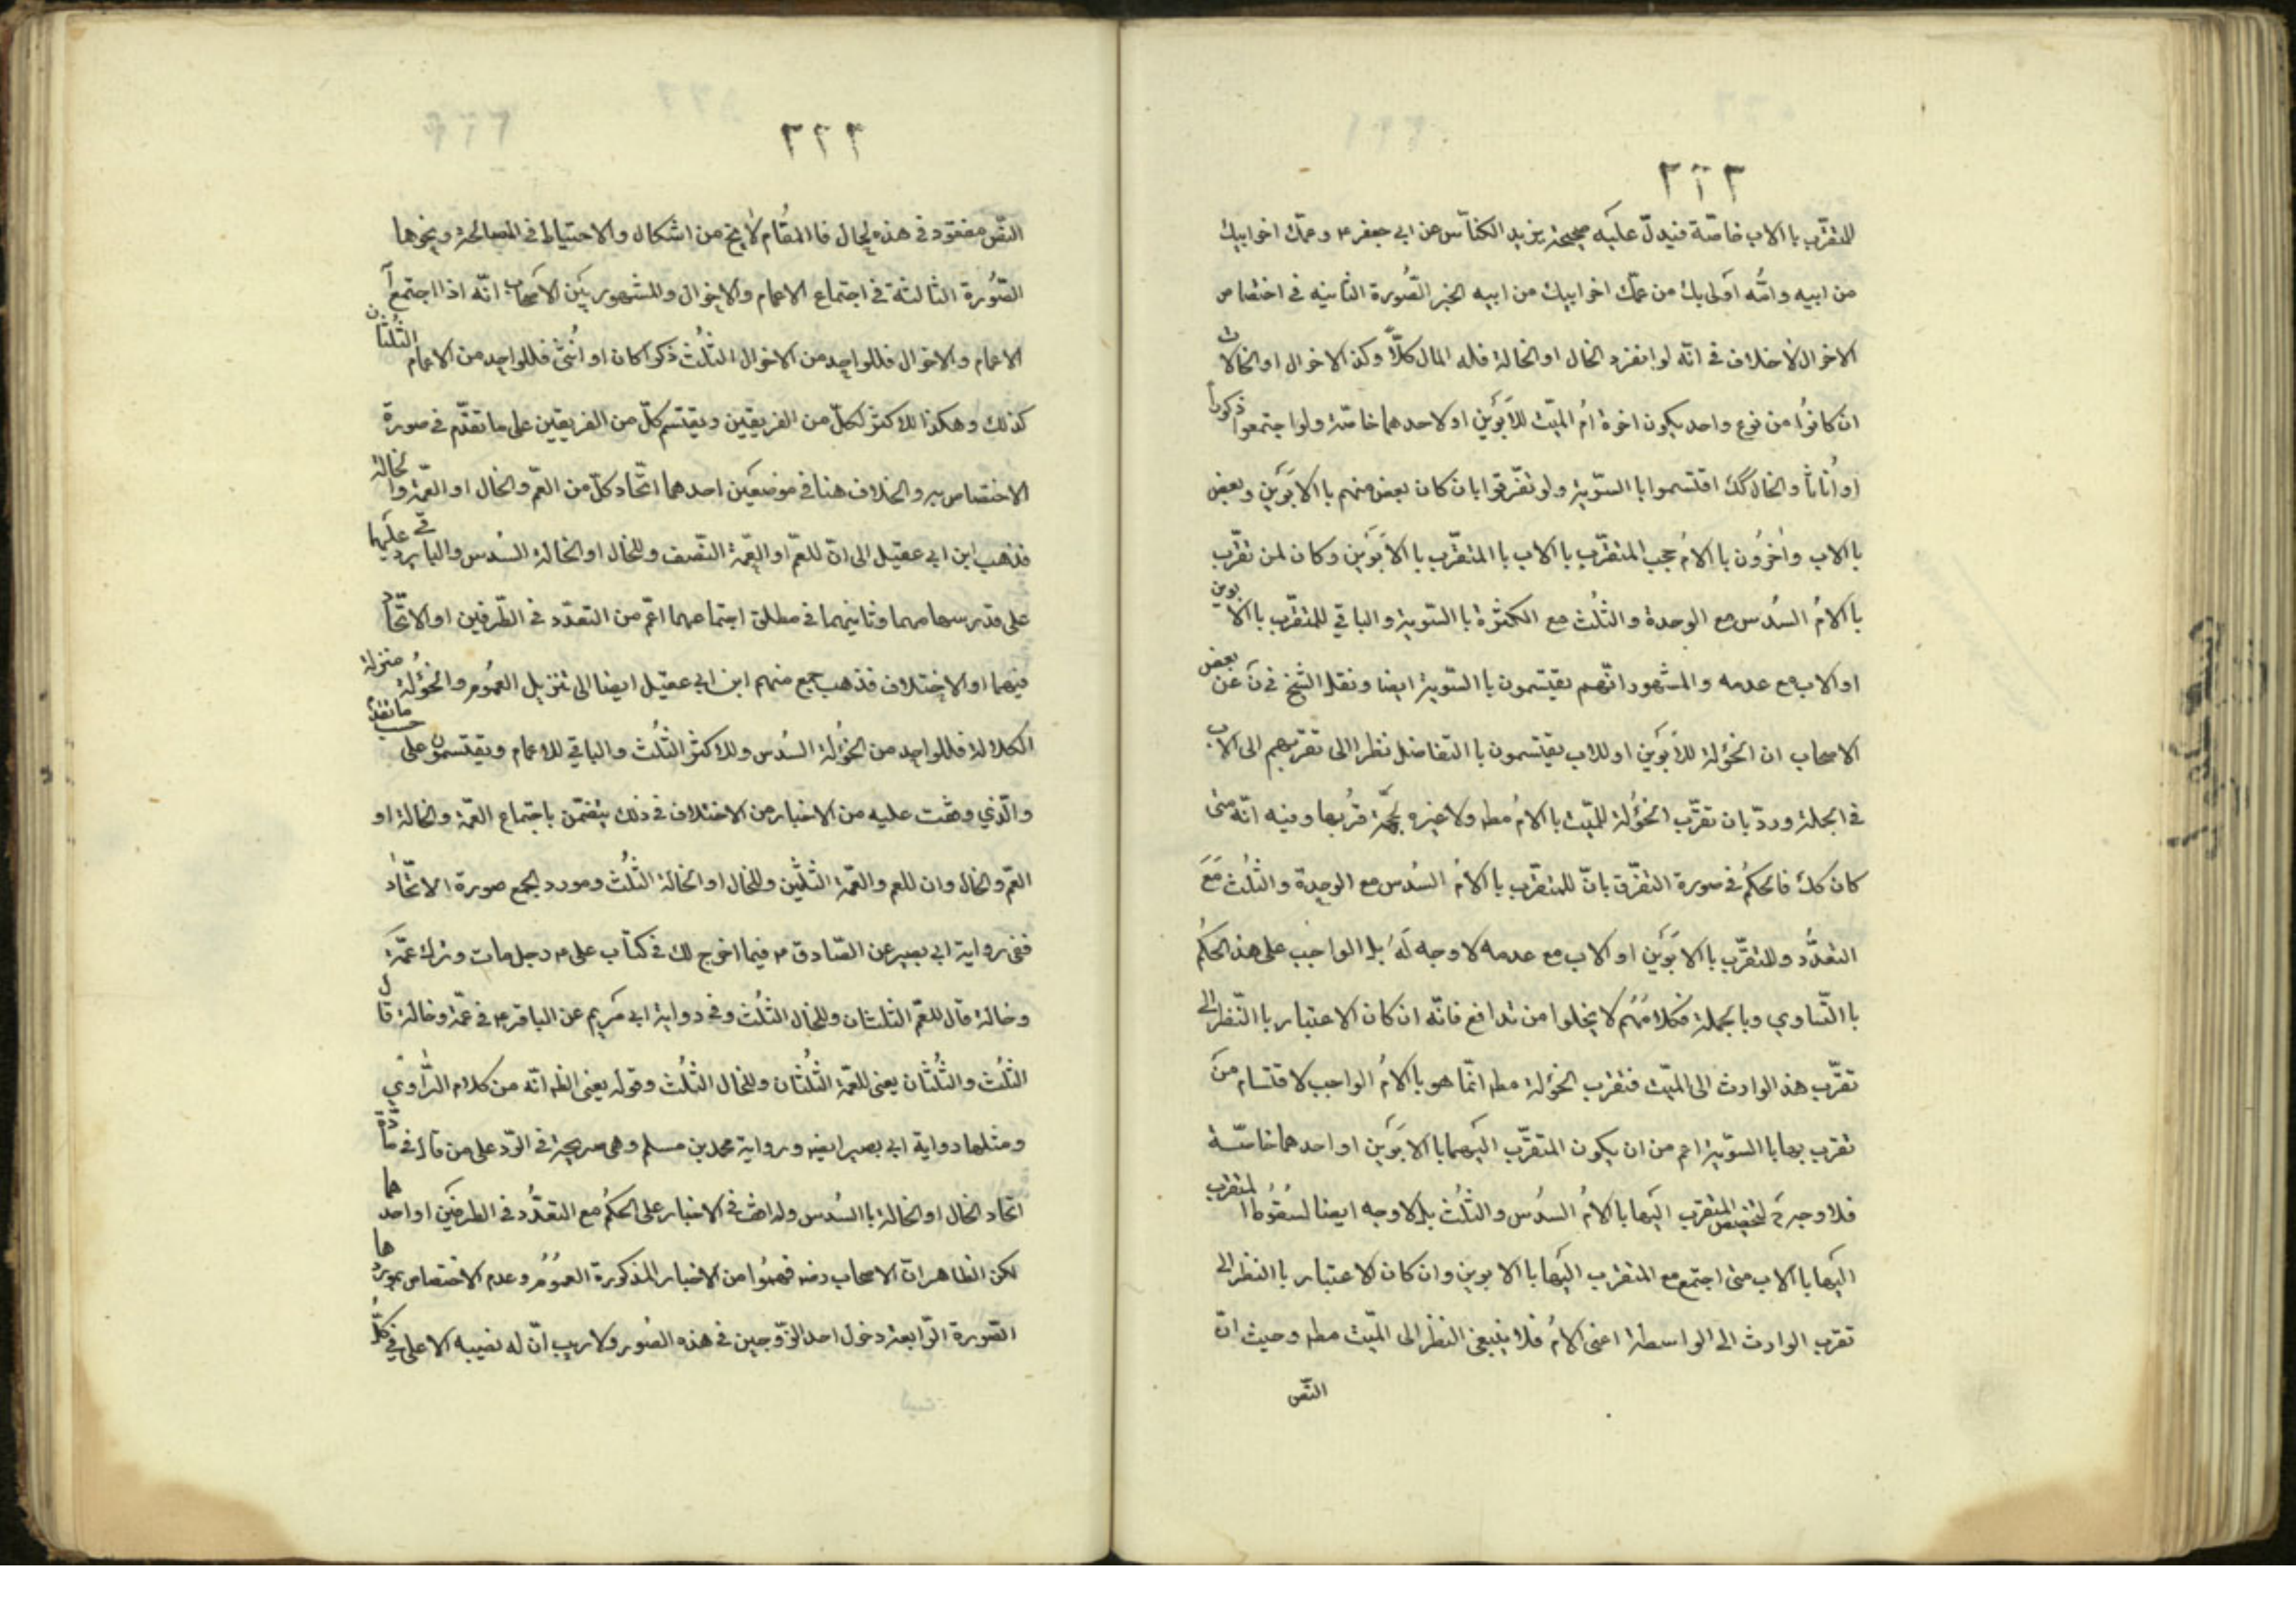 ٢٢٢
للمتقرّب باالاب خاصّة فيدلّ عليه صحيحة يزيد الكناّسى عن ابى جعفر ع وعمّك اخو ابيك
من ابيه وامّه اولى بك من عمّك اخو ابيك من ابيه الخبر الصّورة الثانيه فى اختصاص
الاخوال لاخلاف فى انّه لو انفرد الخال او الخالة فله المال كلاّ وكذ الاخوال او الخالات
ان كانوا من نوع واحد يكون اخوة امُ الميّت للابَوَين او لاحدهما خاصّة ولو اجتمعوا ذكوراً
او اُناثاً والخال كك اقتسموا باالسّوية ولو تفرّقوا بان كان بعض منهم باالابَوَين وبعض
باالاب واٰخرُون باالامُ حجب المتقرّب باالاب باالمتقرّب باالابَوَين وكان لمن تقرّب
باالامُ السُدس مع الوحدة والثلُث مع الكثرة باالسّوية والباقي للمتقرّب باالابوين
او الاب مع عدمه والمشهور انّهم يقتسمون باالسّوية ايضا ونقل الشيخ فى ف عن بعض
الاصحاب ان الخؤلة للابَوَين او للاب يقتسمون باالتفاضل نظرا الى تقربهم الى الاب
فى الجملة وردّ بان تقرّب الخؤُلة للميّت باالامُ مطه ولاعبره بجهَة قربُها وفيه انّه متى
كان كك فالحكم فى صورة التفرّق بانّ للمتقرّب باالامُ السُدس مع الوحدة والثلُث مَعَ
التعدُّد وللمتقرّب باالابوَين او الاب مع عدمه لاوجه لَهُ بل الواجب على هذ الحكمُ
باالتّساوي وبالجملة فكلامُهُم لايخلوا من تدافع فانّه ان كان الاعتبار باالنّظر الى
تقرّب هذ الوارث الى الميّت فتقرب الخؤلة مطه انمّا هو باالامُ الواجب لاقتسام منَ
تقرب بها باالسّوية اعم من ان يكون المتقرّب اليهما باالابَوَين او احدهما خاصّة
فلا وجه ح لتخصيص المتقرب اليها باالامُ السدُس والثلُث بل لاوجه ايضا لسُقوُط المتقرب
اليها باالاب متى اجتمع مع المتقرب اليها باالابوين وان كان لاعتبار باالنظر الى
تقرب الوارث الى الواسطة اعنى الامُ فلا ينبغى النظر الى الميّت مطه وحيث انّ
النّص
٢٢٣
النّص مفقود فى هذه لحال فاالمقَام لايخ من اشكال والاحتياط فى المصالحة ونحوها
الصّورة الثالثة فى اجتماع الاعمام والاخوال والمشهور بيَن الاصحاب انّه اذا اجتمع
الاعمام والاخوال فللواحد من الاخوال الثلُث ذكرا كان او انُثى فللواحد من الاعمام الثلُثان
كذلك وهكذا للاكثر لكلّ من الفريقين ويقتسم كلّ من الفريقين على ما تقدّم فى صورة
الاختصاص به والخلاف هنا فى موضعيَن احدهما اتّحاد كلّ من العّم والخال او العمّة والخالة
فذهب ابن ابى عقيل الى انّ للعّم او العّمة النّصف وللخال او الخالة السدُس والباقى يردّ عليهما
على قدر سهامهما وثانيهما فى مطلق اجتماعهما اعّم من التعدّد فى الطّرفين او الاتّحاد
فيهما او الاختلاف فذهب جمع منهم ابن ابى عقيل ايضا الى تنزيل العمُوم والخؤُلة منزلة
الكلالة فللواحد من الخؤُلة السدُس وللاكثر الثلُث والباقي للاعمام ويقتسموُن على حسب ما تقدم
والّذي وقفت عليه من الاخبار من الاختلاف فى ذلك يتضمّن باجتماع العّمة والخالة او
العّم والخال وان للعم والعّمة الثلثيَن وللخال او الخالة الثلُث ومورد الجمع صورة الاتّحاد
ففى رواية ابى بصير عن الصّادق ع فيما اخرج لك فى كتاب على ع رجل مات وترك عمّه
وخاله قال للعّم الثلثان وللخال الثلُث وفى رواية ابى مَريم عن الباقر ع فى عّمة وخالة قال
الثلُث والثلُثان يعنى للعّمة الثلُثان وللخال الثلُث وقوله يعنى الظه انّه من كلام الرّاوي
ومثلها رواية ابى بصير ايضه ورواية محمد بن مسلم وهى صريحة فى الرّد على من قال فى مادّة
اتحاد الخال او الخالة باالسدُس ولم اقف فى الاخبار على الحكمُ مع التعدُّد فى الطرفيَن او احدهما
لكن الظاهر انّ الاصحاب رضه فهموُا من الاخبار المذكورة العموُم وعدم الاختصاص بموردها
الصّورة الرّابعة دخول احد الزّوجين فى هذه الصُور ولاريب انّ له نصيبه الاعلى فى كلُّ